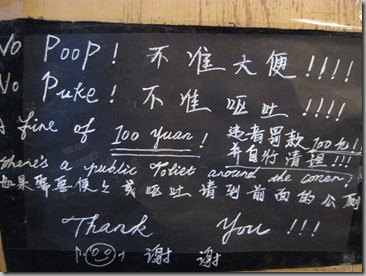 No POOP! 不准大便!!!!
No Puke! 不准呕吐!!!!
A fine of 100 Yuan! 违者罚款100元!
并自行清理!!!
There's a public Toliet around the coner!
如果需要便之或呕吐请到前面的公厕
Thank You !!!
谢谢